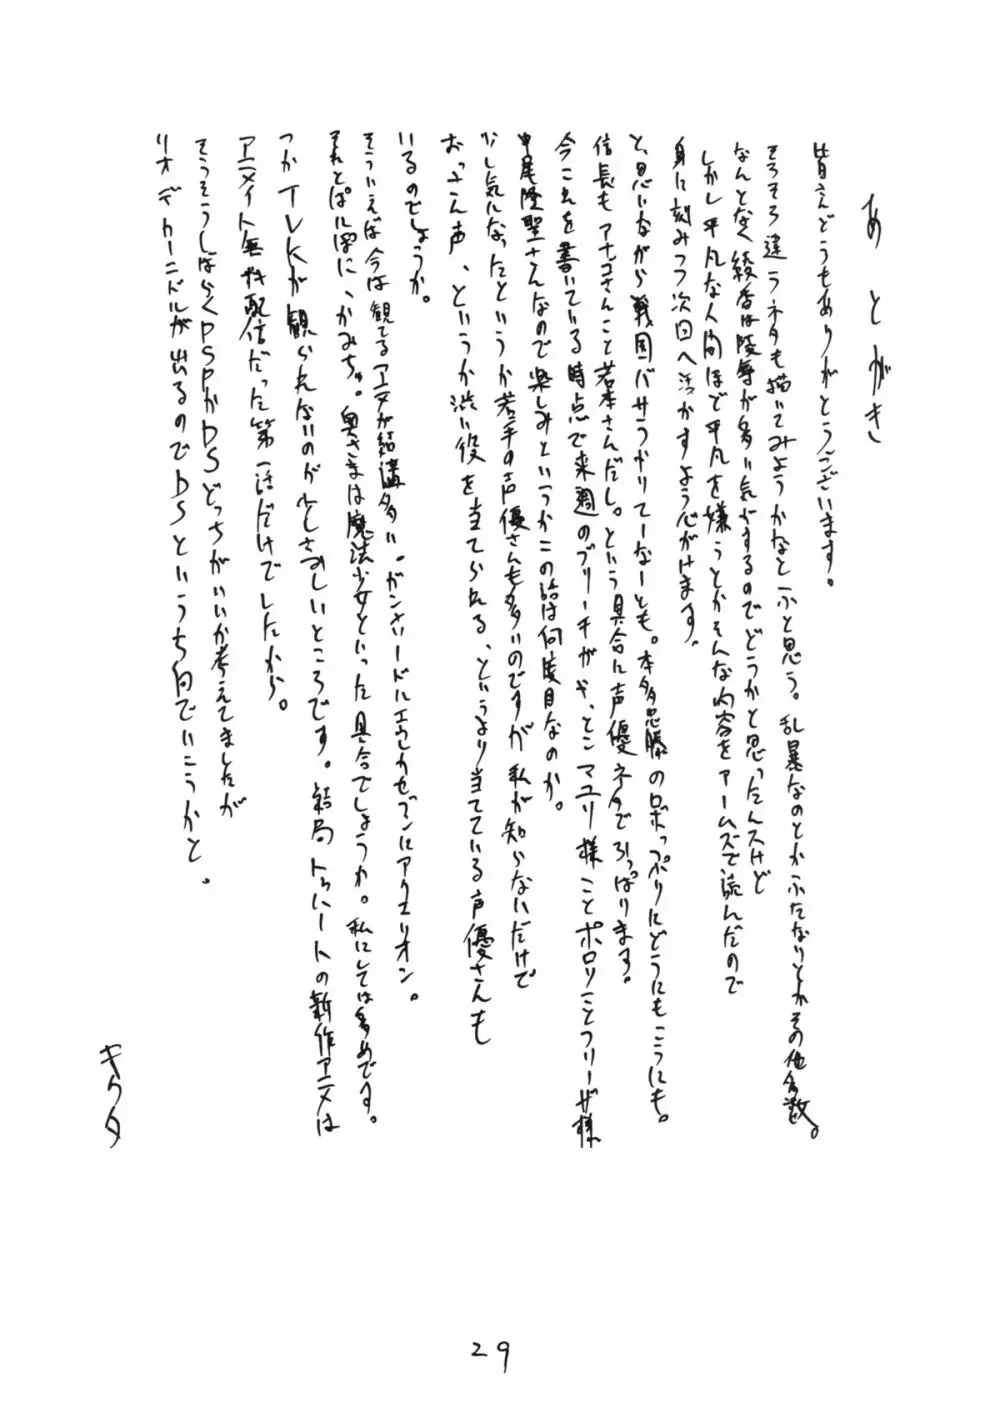 あとがき
皆さんどうもありがとうございます。
そろそろ違うネタも描いてみようかなとふと思う。乱暴なのとかふたなりとかその他多数。
なんとなく綾香は陵辱が多い気がするのでどうかと思ったんスけど
しかし平凡な人間ほど平凡を嫌うとかそんな内容をアームズで読んだので
身に刻みつつ次回へ活かすよう心がけます。
と、思いながら戦国バサラかりてーなーとも。本多忠勝のロボっぷりにどうにもこうにも。
信長もアナゴさんこと若本さんだし。という具合に声優ネタで引っぱります。
今これを書いている時点で来週のブリーチがやっとこマユリ様ことポロリことフリーザ様
中尾隆聖さんなので楽しみというかこの話は何度目なのか。
少し気になったというか若手の声優さんも多いのですが私が知らないだけで
おっさん声、というか渋い役を当てられる、というより当てている声優さんも
いるのでしょうか。
そういえば今は観てるアニメが結構多い。ガンさいードルエウレカセブンにアクエリオン。
それとぱにぽに、かみちゅ。奥さまは魔法少女といった具合でしょうか。私にしては多めです。
つかTVKが観られないのが少しさみしいところです。結局トゥハートの新作アニメは
アニメイト無料配信だった第一話だけでしたから。
そうそうしばらくPSPかDSどっちがいいか考えてましたが
リオデカーニバルが出るのでDSというち向でいこうかと。
キクタ
29